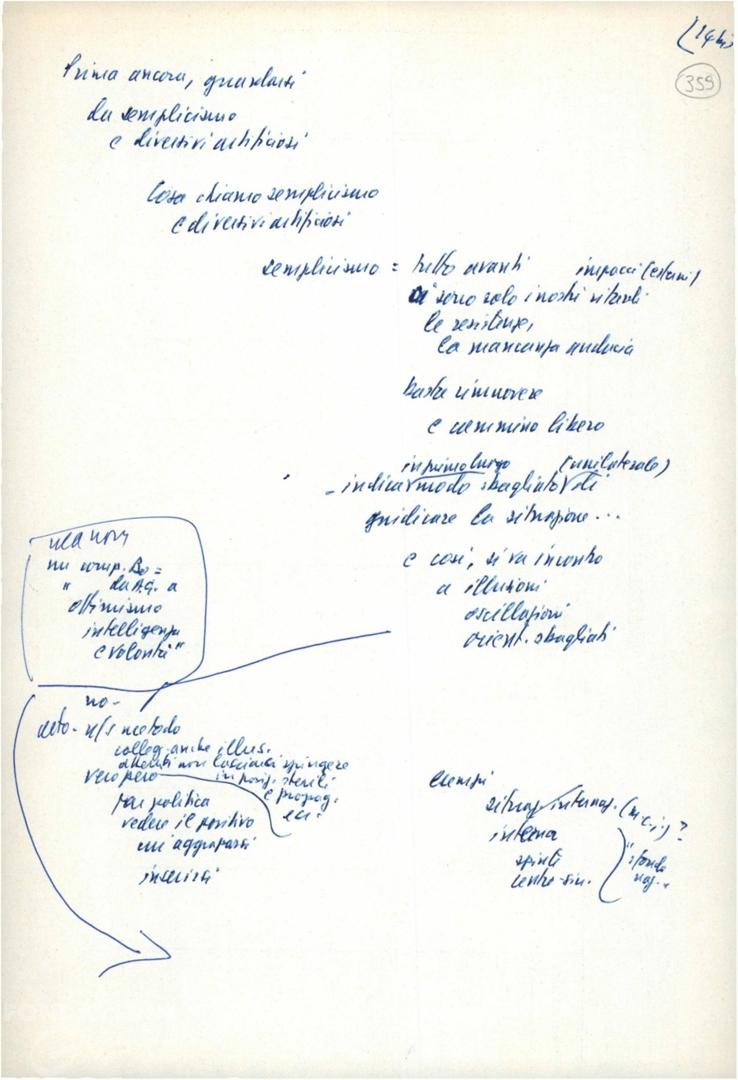 (14 bis
359
Prima ancora, guardarsi
da semplicismo
e diversivi artificiosi
Cosa chiamo semplicismo
e diversivi artificiosi
semplicismo = tutto avanti impacci (esterni)
sono solo i nostri ritardi
le resistenze,
la mancanza audacia
basta rimuovere
e cammino libero
in primo luogo (unilaterale)
- indicar modo sbagliato di
giudicare la situazione...
e così, si va incontro
a illusioni
oscillazioni
orient. sbagliati
mi comp. Bo =
" da A.G. a
ottimismo
intelligenza
e volontà"
no -
detto - n/s metodo
colleg. anche illus.
attenti non lasciarci spingere
vero però in posiz. sterili
e propag.
ecc.
far politica
vedere il positivo
cui aggrapparsi
inserirsi
Esempi
situaz. internaz. (m.c.i.) ?
interna
spinta
centro-sin.
"sfondo
naz."